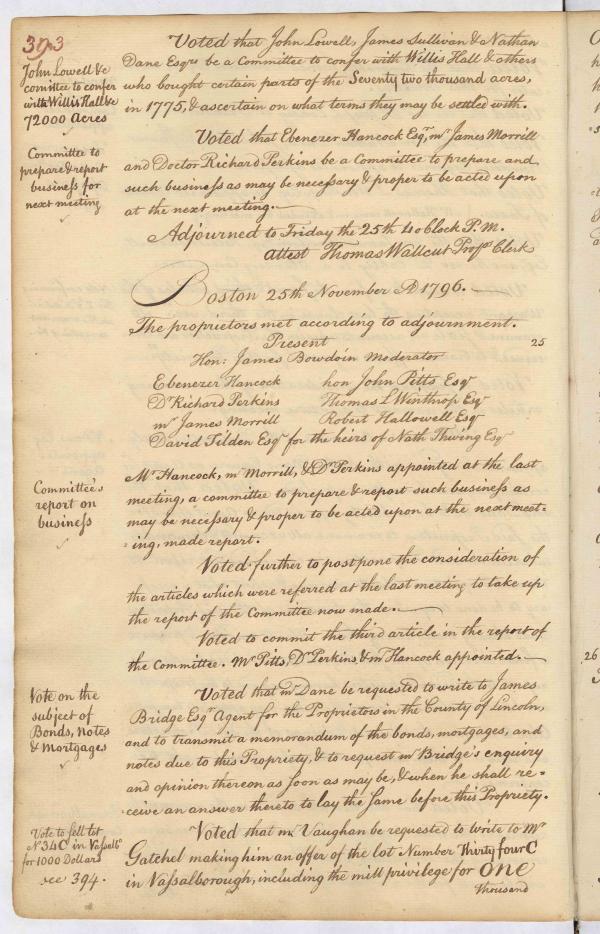 393
John Lowell &c
comittee to confer
with Willis Hall &c
72000 Acres
Voted that John Lowell, James Sullivan & Nathan
Dane Esqrs be a Committee to confer with Willis Hall & others
who bought certain parts of the Seventy two thousand acres,
in 1775, & ascertain on what terms they may be settled with.
Committee to
prepare & report
business for
next meeting
Voted that Ebenezer Hancock Esqr, mr James Morrill
and Doctor Richard Perkins be a Committee to prepare and
such business as may be necessary & proper to be acted upon
at the next meeting.
Adjourned to Friday the 25th 4 oClock P.M.
Attest Thomas Wallcut Proprs Clerk
Boston 25th November AD 1796.
The proprietors met according to adjournment.
Present 25
Hon: James Bowdoin Moderator
Ebenezer Hancock hon John Pitts Esqr
Dr Richard Perkins Thomas L Winthrop Esqr
mr James Morrill Robert Hallowell Esqr
David Tilden Esqr for the heirs of Nath Thwing Esqr
Committee's
report on
business
Mr Hancock, mr Morrill, & Dr Perkins appointed at the last
meeting, a committee to prepare & report such business as
may be necessary & proper to be acted upon at the next meet-
ing, made report.
Voted further to postpone the consideration of
the articles which were referred at the last meeting to take up
the report of the Committee now made.
Voted to commit the third article in the report of
the Committee. Mr Pitts, Dr Perkins & mr Hancock appointed.
26
Vote on the
subject of
Bonds, Notes
& Mortgages
Voted that mr Dane be requested to write to James
Bridge Esqr Agent for the Proprietors in the County of Lincoln,
and to transmit a memorandum of the bonds, mortgages, and
notes due to this Propriety, & to request mr Bridge's enquiry
and opinion thereon as soon as may be, & when he shall re-
ceive an answer thereto to lay the same before this Propriety.
Vote to sell lot
No 34 C in Vassalbo
for 1000 Dollars
see 394.
Voted that mr Vaughan be requested to write to Mr
Gatchel making him an offer of the lot Number Thirty four C
in Vassalborough, including the mill privilege for One
thousand